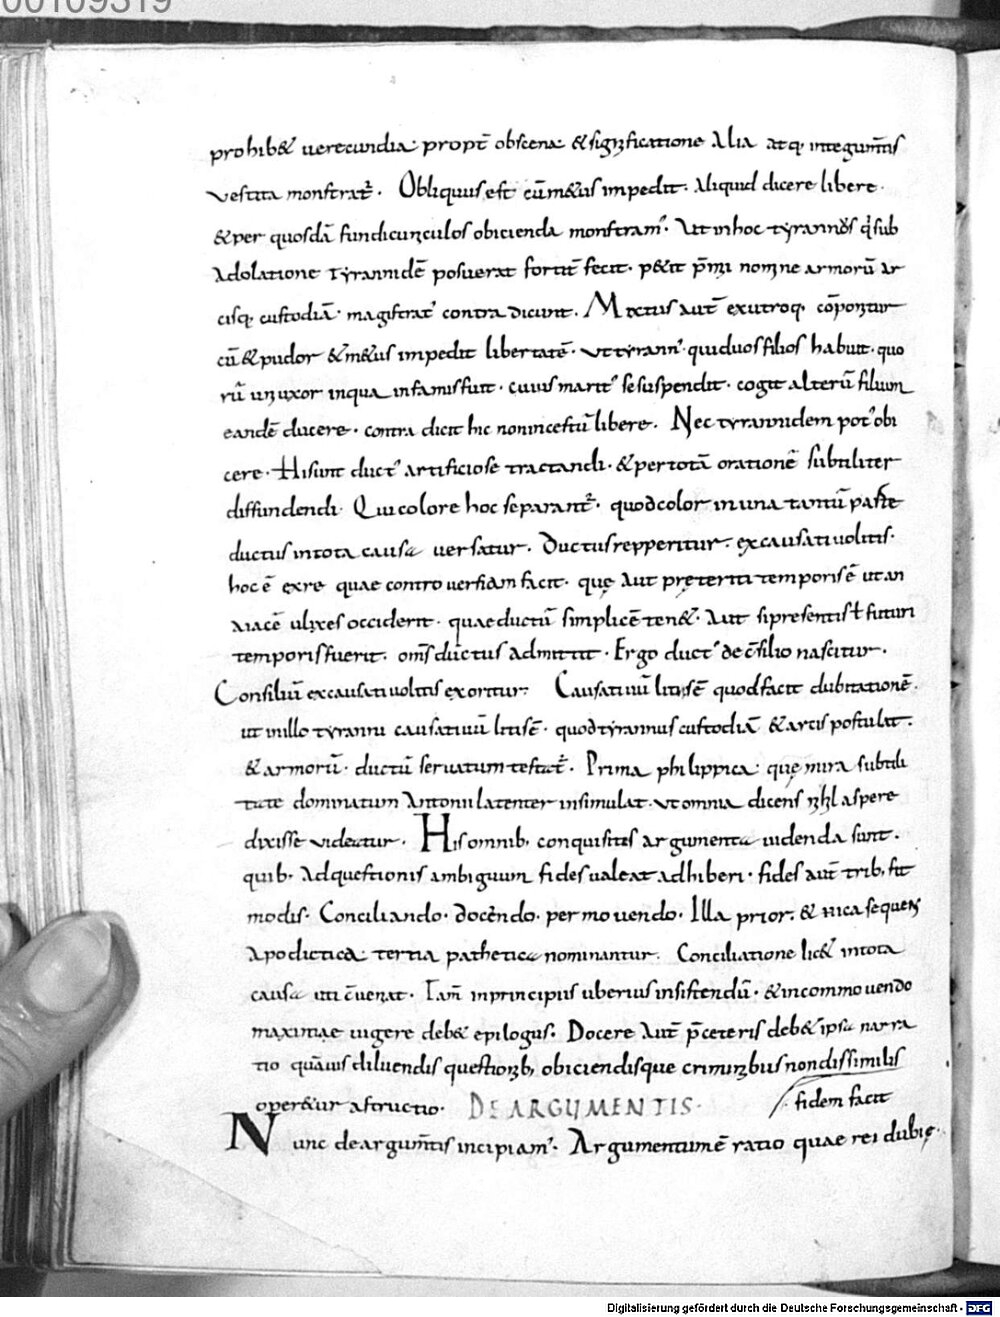 00109319
prohib& uerecundia propt̄ obscena &significatione Alia atq; integum̄tis
vestita monstrat᷑. Obliquus est cūm&us impedit. Aliquid dicere libere.
&per quosdā fundicunculos obicienda monstram᷒. Ut inhoc tyrann᷒ qī sub
Adolatione Tyrannidē posuerat fortit̄ fecit. p&it p̄mi nomine armorū ar
cisq; custodiā. magistrat᷒ contra dicunt. Mixtus aut̄ exutroq; cōponitur
cū &pudor &m&us impedit libertatē. ut tyrann᷒ qui duos filios habuit. quo
rū un᷒ uxor inqua infamis fuit. cuius marit᷒ se suspendit. cogit alterū filium
eandē ducere. contra dicit hic non incestū libere. Nec tyrannidem pot᷒ obi
cere. Hi sunt duct᷒ artificiose tractandi. &per totā orationē subtiliter
diffundendi. Qui colore hoc separant᷑. quod color in una tantū parte
ductus in tota causa uersatur. Ductus repperitur. ex causatiuo litis.
hoc ē ex re quae controuersiam facit. quę Aut pręteriti temporis ē ut an
aiacē ulixes occiderit. quae ductū simplicē ten&. Aut si presentis ł futuri
temporis fuerit. om̄s ductus Admittit. Ergo duct᷒ de c̄silio nascitur.
Consiliū ex causatiuo litis exoritur. Causatiuū litis ē quod facit dubitationē.
ut in illo tyranni causatiuū litis ē. quod tyrannus custodiā &arcis postulat.
&armorū. ductū seruatum testat᷑. Prima philippica. quę mira subtili
tate dominatum Antonii latenter insimulat. ut omnia dicens nihil aspere
dixisse videatur. His omnib; conquisitis argumenta uidenda sunt.
quib; Ad questionis ambiguum fides ualeat adhiberi. fides aut̄ trib; fit
modis. Conciliando. docendo. permouendo. Illa prior. & nica sequens
Apodictica tertia pathetica nominantur. Conciliatione lic& in tota
causa uti c̄uenat. Tam̄ in principiis uberius insistendū. &in commouendo
maximae uigere deb& epilogus. Docere Aut̄ p̄ ceteris deb& ipsa narra
tio quāuis diluendis questionib; obiciendisque criminibus non dissimilis
oper&ur astructio. DE ARGUMENTIS. fidem facit
Nunc de argum̄tis incipiam᷒. Argumentum ē ratio quae rei dubię.
Digitalisierung gefördert durch die Deutsche Forschungsgemeinschaft - DFG